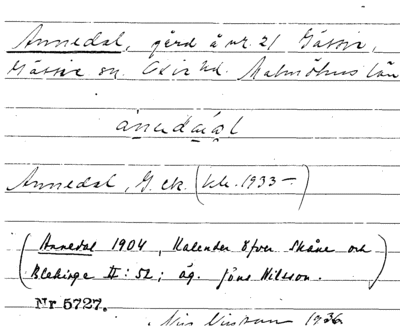 Annedal, gård å nr. 21 Gässie,
Gässie sn. Oxie hd. Malmöhus län
Annedal, G. ek. (bebr. 1933 –)
(Annedal 1904, Kalender öfver Skåne och
Blekinge II: 52; äg. Jöns Nilsson.)
Nr 5727.
1936